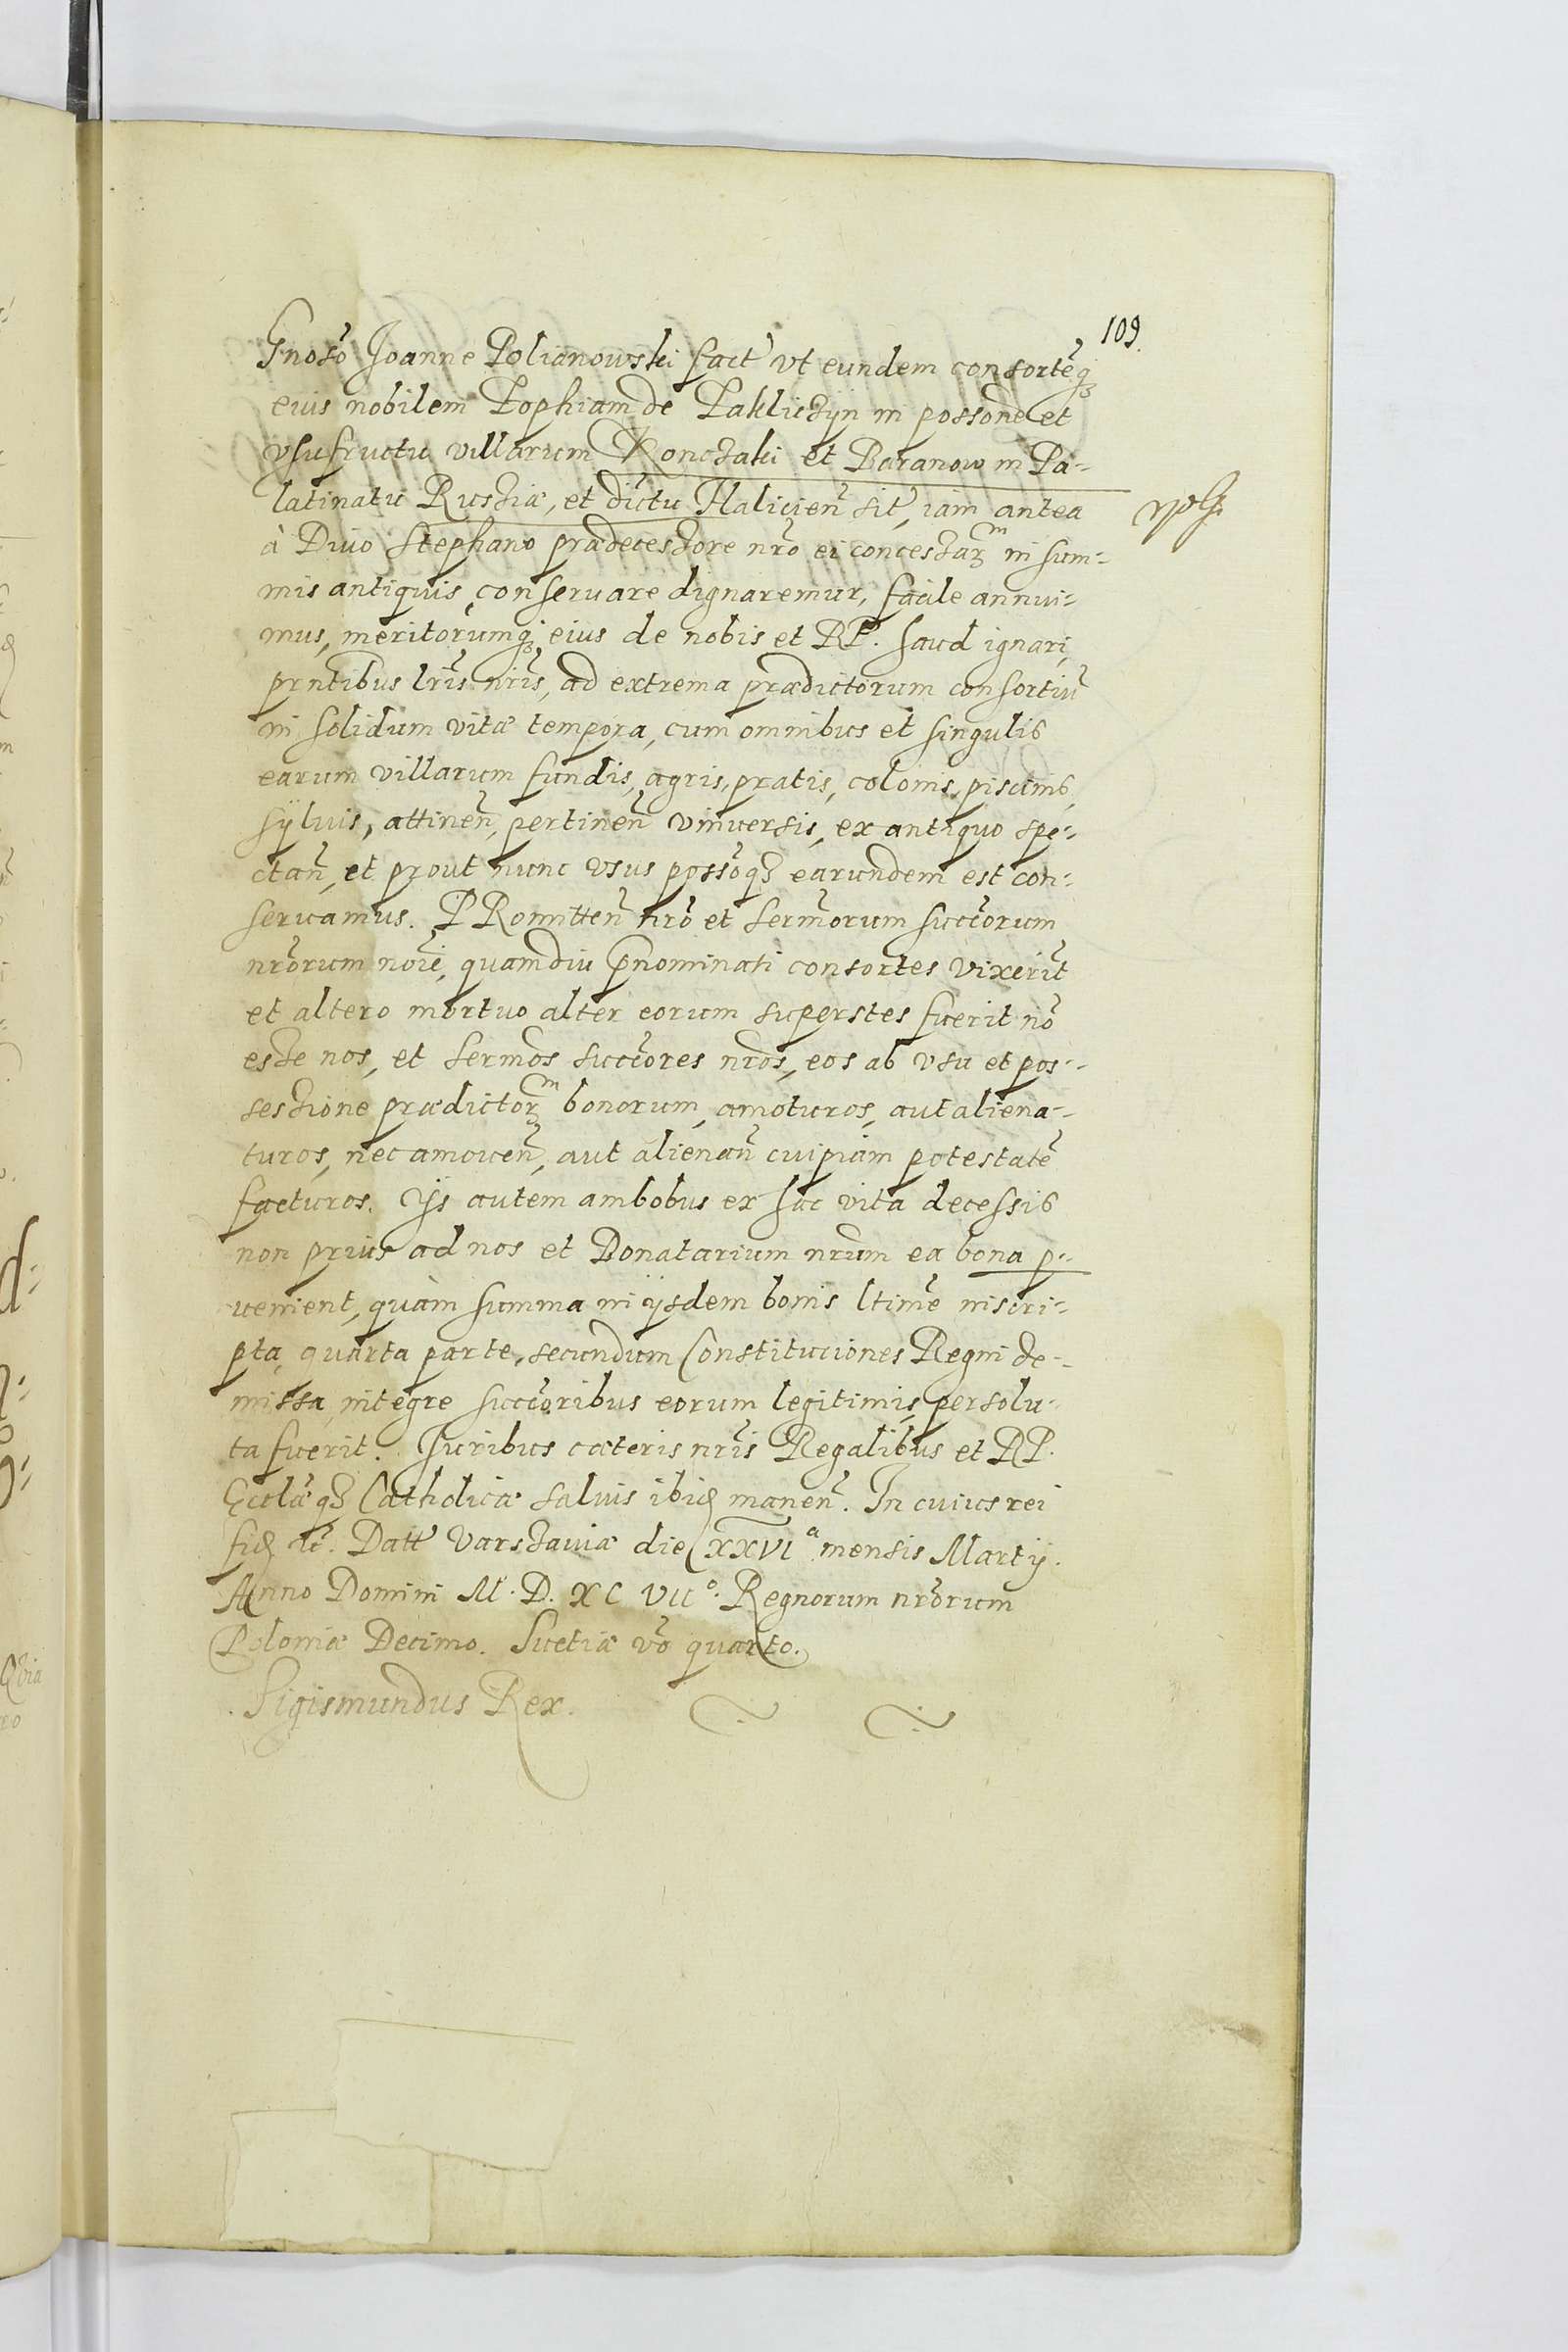 109.
Gnoso Joanne Polianowski fact ut eundem consorteq3
eius nobilem Zophiam de Zakliczyn in possone et
usufructu villarum Konczaki et Baranow in Pa-
latinatu Russiæ, et dictu Halicien sit, iam antea
à Divo Stephano prædecessore nro ei concessarum in sum-
mis antiquis conservare dignaremur, facile annui-
mus, meritorumq3 eius de nobis et RP. haud ignari,
prntibus lris nris, ad extrema prædictorum consortiu
in solidum vitæ tempora, cum omnibus et singulis
earum villarum fundis, agris, pratis, colonis, piscinis,
sylvis, attinen, pertinen universis, ex antiquo spe-
ctan, et prout nunc usus possoq3 earundem est con-
servamus. PRomitten nro et sermorum succorum
nrorum noie, quamdiu pnominati consortes vixerit
et altero mortuo alter eorum superstes fuerit no
esse nos, et sermos succores nros, eos ab usu et pos-
sessione prædictorum bonorum, amoturos, aut aliena-
turos, nec amoven, aut alienan cuipiam potestate
facturos. Ijs autem ambobus ex hac vita decessis
non prius ad nos et Donatarium nrum ea bona p-
uenient, quàm summa in ijsdem bonis ltime inscri-
pta, quarta parte, secundum Constituciones Regni de-
missa, integre succoribus eorum legitimis persolu-
ta fuerit. Juribus cæteris nris Regalibus et RP.
Ecclæq3 Catholicæ salvis ibid manen. In cuius rei
fid etc. Datt Varssaviæ die XXVIa mensis Martij.
Anno Domini M. D. XC VIIo. Regnorum nrorum
Poloniæ Decimo. Suetiæ vo quarto.
Sigismundus Rex.